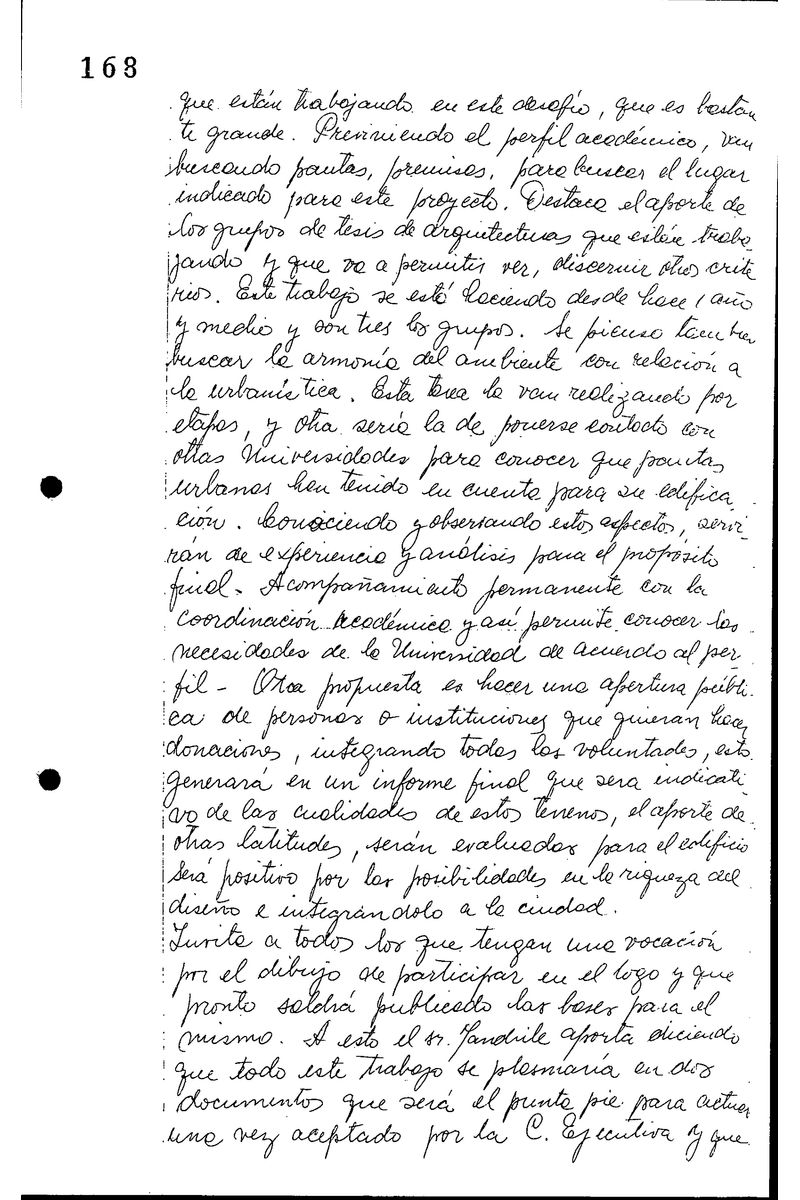 168
que están trabajando en este desafío, que es bastan
te grande. Previniendo el perfil académico, van
buscando pautas, premisas, para buscar el lugar
indicado para este proyecto. Destaca el aporte de
los grupos de tesis de arquitecturas que están traba
jando y que va a permitir ver, discernir otros crite
rios. Este trabajo se está haciendo desde hace 1 año
y medio y son tres los grupos. Se piensa también
buscar la armonía del ambiente con relación a
la urbanística. Esta tarea la van realizando por
etapas, y otra sería la de ponerse contacto con
otras Universidades para conocer que pautas
urbanas han tenido en cuenta para su edifica
ción. Conociendo y observando estos aspectos, servi
rán de experiencia y análisis para el propósito
final - Acompañamiento permanente con la
Coordinación Académica y así permite conocer las
necesidades de la Universidad de acuerdo al per
fil - Otra propuesta es hacer una apertura públi
ca de personas o instituciones que quieran hacer
donaciones, integrando todas las voluntades, esto
generará en un informe final que sera indicati
vo de las cualidades de estos terrenos, el aporte de
otras latitudes, serán evaluadas para el edificio
Será positivo por las posibilidades en la riqueza del
diseño e integrándolo a la ciudad.
Invita a todos los que tengan una vocación
por el dibujo de participar en el logo y que
pronto saldrá publicado las bases para el
mismo. A esto el sr. Tandrile aporta diciendo
que todo este trabajo se plasmaría en dos
documentos que será el punta pie para actuar
una vez aceptado por la C. Ejecutiva y que